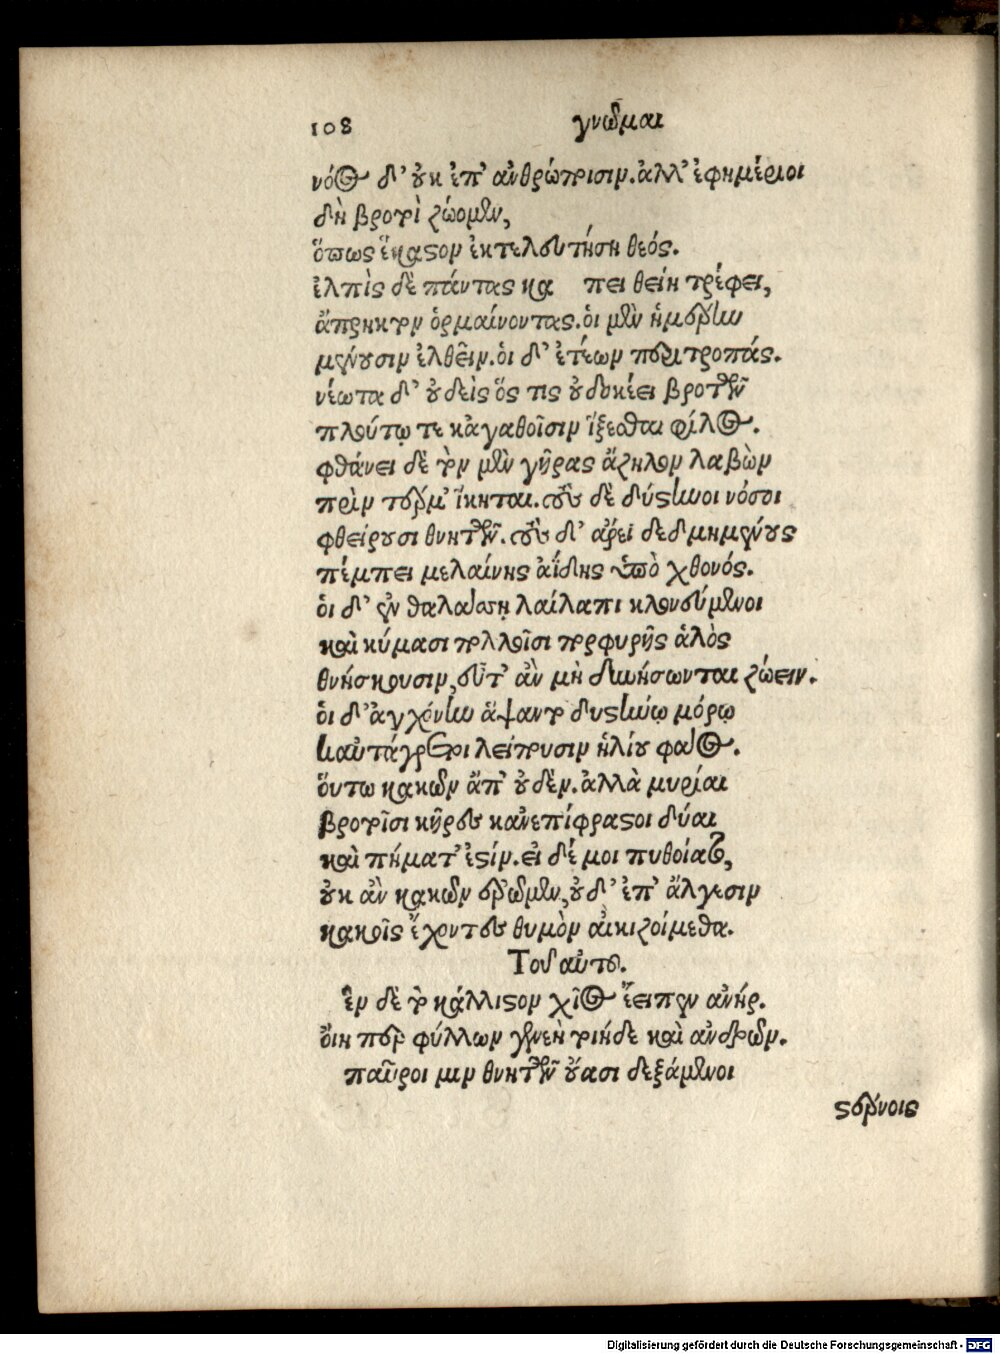 108 γνῶμαι
νόος δ' οὐκ ἐπ' ἀνθρώποισιν. ἀλλ' ἐφημέριοι
δὴ βροτοὶ ζώομεν,
ὅπως ἕκαστον ἐκτελευτήση θεός.
ἐλπὶς δὲ πάντας κα πει θείη τρέφει,
ἄπρηκτον ὁρμαίνοντας. οἱ μὲν ἡμέρην
μένουσιν ἐλθεῖν. οἱ δ' ἐτέων περιτροπάς.
νέωτα δ' οὐδεὶς ὅς τις οὐ δοκέει βροτῶν
πλούτῳ τε κἀγαθοῖσιν ἵξεσθαι φίλος.
φθάνει δὲ τὸν μὲν γῆρας ἄζηλον λαβὼν
πρὶν τέρμ' ἵκηται. τοὺς δὲ δύστηνοι νόσοι
φθείρουσι θνητῶν. τοὺς δ' ἄρει δεδμημένους
πέμπει μελαίνης ἀΐδης ὑπὸ χθονός.
οἱ δ' ἐν θαλάσση λαίλαπι κλονεύμενοι
καὶ κύμασι πολλοῖσι πορφυρῆς ἁλὸς
θνήσκουσιν, εὖτ' ἂν μὴ δυνήσωνται ζώειν.
οἱ δ' ἀγχόνην ἅψαντο δυστήνῳ μόρῳ
καὐτάγρετοι λείπουσιν ἡλίου φάος.
ὅυτω κακῶν ἄπ' οὐδέν. ἀλλὰ μυρίαι
βροτοῖσι κῆρες κἀνεπίφραστοι δύαι
καὶ πήματ' ἐστίν. εἰ δέ μοι πυθοίατο,
οὐκ ἂν κακῶν ἐρῶμεν, οὐδ' ἐπ' ἄλγεσιν
κακοῖς ἔχοντες θυμὸν αἰκιζοίμεθα.
Τοῦ αὐτοῦ.
ἓν δὲ τὸ κάλλιστον χῖος ἔειπεν ἀνήρ.
ὅιη περ φύλλων γενεὴ τοιήδε καὶ ἀνδρῶν.
παῦροι μιν θνητῶν οὔασι δεξάμενοι
στέρνοις
Digitalisierung gefördert durch die Deutsche Forschungsgemeinschaft - DFG